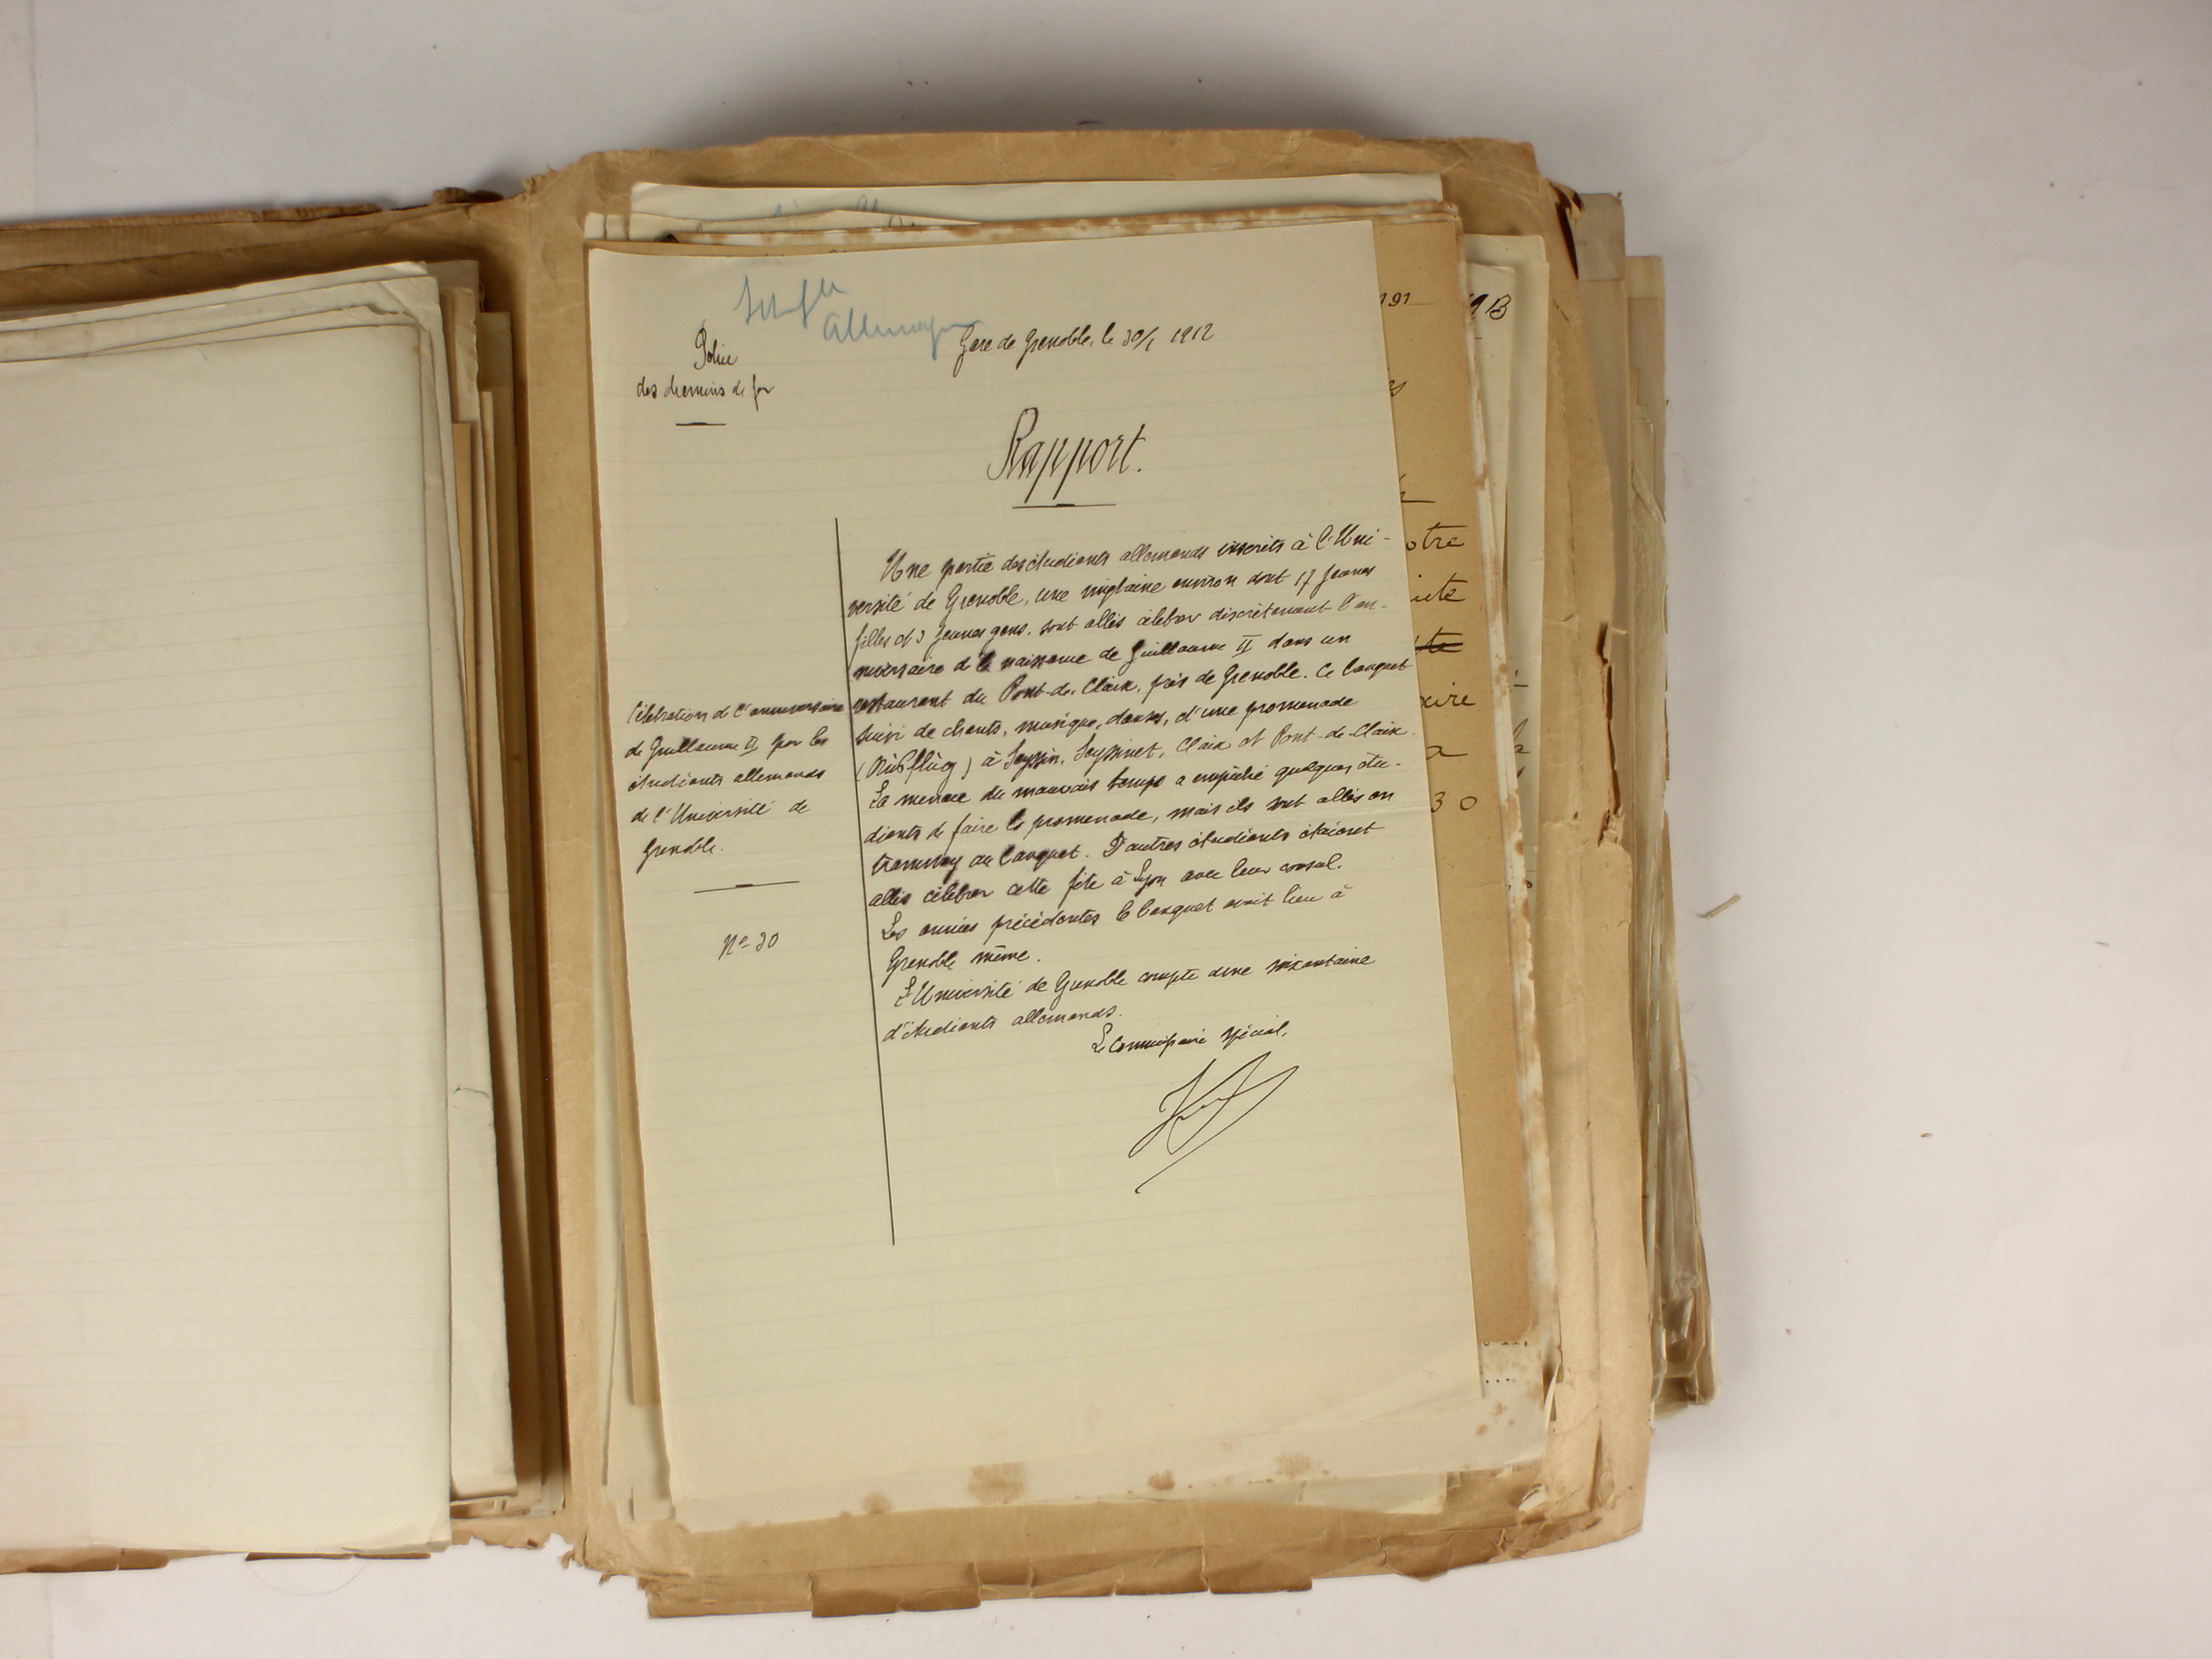 Allemagne
Gare de Grenoble, le 30/1 1912
Police
des chemins de fer
Rapport.
Célébration de l'anniversaire
de Guillaume II par les
étudiants allemands
de l'Université de
Grenoble.
No 30
Une partie des étudiants allemands inscrits à l'Uni-
versité de Grenoble, une vingtaine environ dont 17 jeunes
filles et 3 jeunes gens, sont allés célébrer discrètement l'an-
niversaire de la naissance de Guillaume II dans un
restaurant du Pont-de-Claix, près de Grenoble. Ce banquet
suivi de chants, musique, danses, d'une promenade
(Ausflug) à Seyssin, Seyssinet, Claix et Pont-de-Claix.
La menace du mauvais temps a empêché quelques étu-
diants de faire la promenade, mais ils sont allés en
tramway au banquet. D'autres étudiants étaient
allés célébrer cette fête à Lyon avec leur consul.
Les années précédentes le banquet avait lieu à
Grenoble même.
L'Université de Grenoble compte une soixantaine
d'étudiants allemands.
Le Commissaire spécial,
191
13
otre
uite
aire
a
30